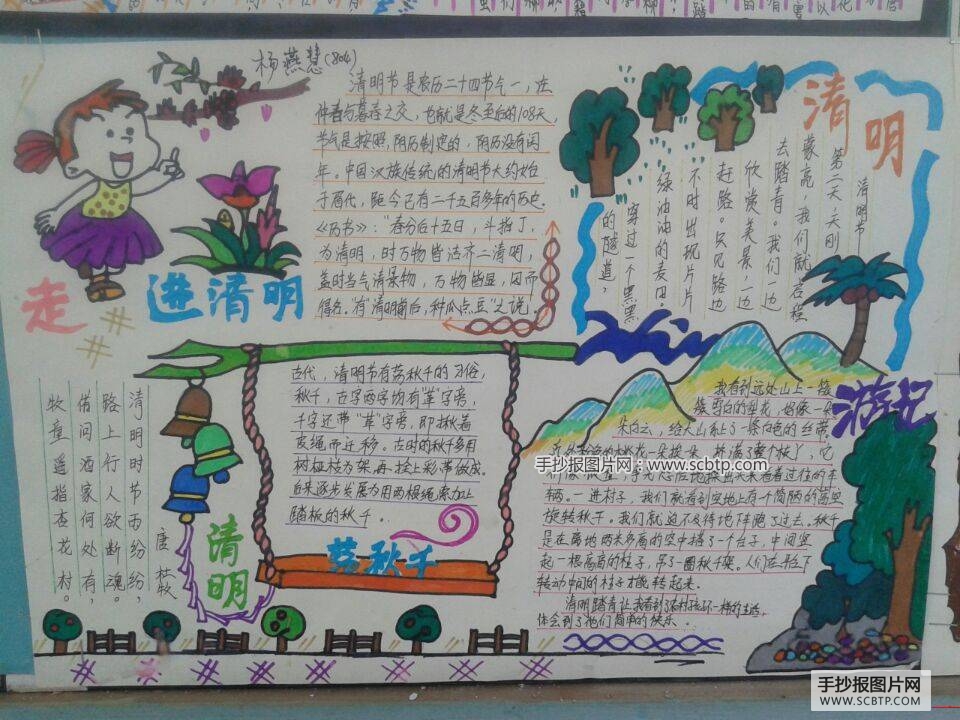 杨燕慧(804)
走进清明
清明节是农历二十四节气一,在
仲春与暮春之交,也就是冬至后的108天,
节气是按照阴历制定的,阴历没有闰
年。中国汉族传统的清明节大约始
于周代,距今已有二千五百多年的历史。
《历书》:"春分后十五日,斗指丁,
为清明,时万物皆洁齐二清明,
盖时当气清景物,万物皆显,因而
得名。有"清明前后,种瓜点豆"之说!
清明
游记
清明节
第二天,天刚
蒙亮,我们就启程
去踏青。我们一边
欣赏美景一边
赶路。只见路边
不时出现片片
绿油油的麦田。
穿过一个黑黑
的隧道,
我看到远处山上一簇
簇雪白的梨花,好像一朵
朵白云,给大山系上了一条白色的丝带。
一朵挨一朵,
着过往的车
辆。一进村子,我们就看到空地上有个简陋的高空
旋转秋千。我们就迫不及待地下跑了过去。秋千
是在离地两米多高的空中搭了一个台子,中间竖
起一根高高的柱子,吊了一圈秋千架。人们在平台下
转动中间的柱子才能转起来。
清明踏青让我看到了农村孩不一样的生活,
体会到了他们简单的快乐。
古代,清明节有荡秋千的习俗,
秋千,古字两字均有"革"字旁,
千字还带"革"字旁,即揪着
皮绳而迁移。古时的秋千多用
树桠枝为架,再栓上彩带做成。
后来逐步发展为用两根绳索加上
踏板的秋千。
荡秋千
清明
唐 杜牧
清明时节雨纷纷,
路上行人欲断魂。
借问酒家何处有,
牧童遥指杏花村。
手抄报图片网——www.scbtp.com
手抄报图片网
WWW.SCBTP.COM